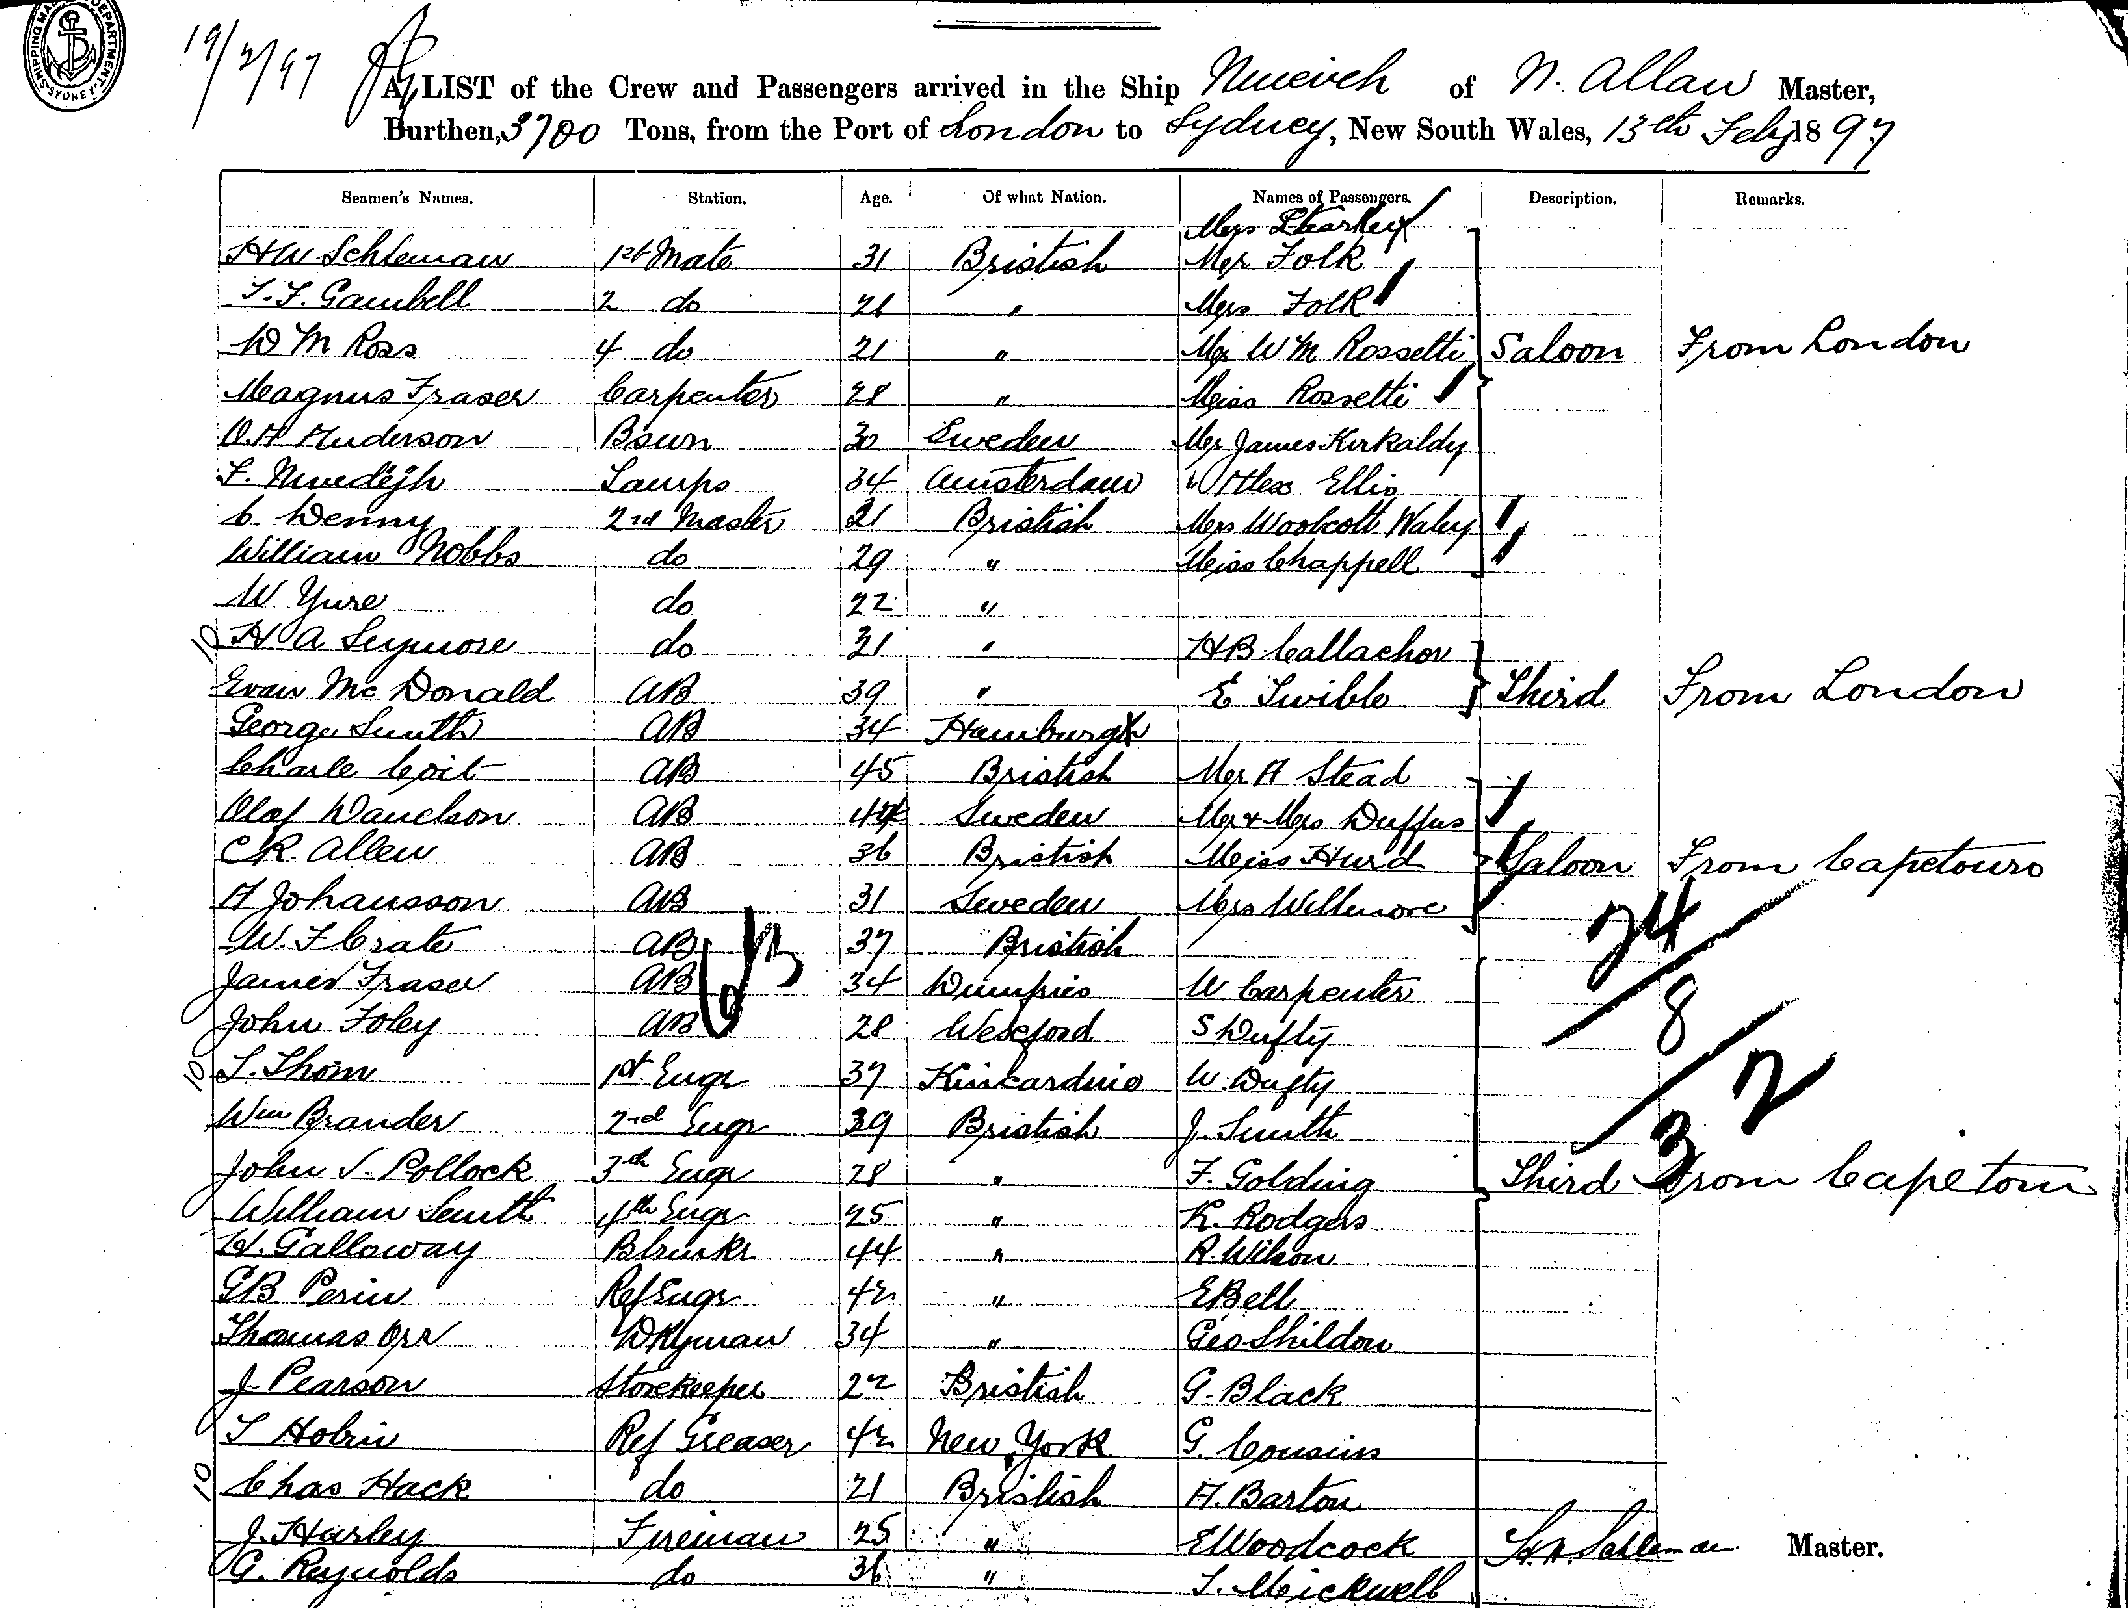 SHIPPING MASTER'S DEPARTMENT SYDNEY
19/2/97
A LIST of the Crew and Passengers arrived in the Ship Nineveh of N. Allan Master,
Burthen, 3700 Tons, from the Port of London to Sydney, New South Wales, 13th Feby 1897
Seamen's Names. Station. Age. Of what Nation. Names of Passengers. Description. Remarks.
Mrs Starkey
H W Schleman 1st Mate 31 Bristish Mr Folk
T. F. Gambell 2 do 21 " Mrs Folk
W M Ross 4 do 21 " Mr W M Rossetti Saloon From London
Magnus Fraser Carpenter 28 " Miss Rossetti
O. A Anderson Bswn 30 Sweden Mr James Kirkaldy
F. Lamps 34 Amsterdam " Alex Ellis
C. Denny 2nd Master 21 Bristish Mrs Woolcott Waley
William Nobbs do 29 " Miss Chappell
W Yure do 22 "
10 H A Seymore do 31 " H B Callachor
Evan Mc Donald AB 39 " E Twible Third From London
George Smith AB 34 Hamburg
Charle Coit AB 45 Bristish Mr A Stead
Olaf Danelson AB 44 Sweden Mr & Mrs Duffus
C R. Allen AB 36 Bristish Miss Hurd Saloon From Capetown
A Johansson AB 31 Sweden Mrs Willmore
24
W. T Crate AB 37 Bristish
James Fraser AB 34 Dumfries W Carpenter
8
John Foley AB 28 Wexford S Dufty
10 T. Thom 1st Engr 37 Kincardine W. Dufty
32
Wm Brander 2nd Engr 39 Bristish J. Smith
John S. Pollock 3th Engr 28 " F. Golding Third From Cape town
William Smith 4th Engr 25 " K. Rodgers
W. Galloway 44 " R. Wilson
G B Perin Ref Engr 42 " E Bell
Thomas Orr DKyman 34 " Geo Shildon
J Pearson Storekeeper 22 Bristish G. Black
T Hobin Ref Greaser 42 New York G. Cousins
10 Chas Hack do 21 Bristish A. Barton
J. Harley Fireman 25 " E Woodcock H. W. Schleman Master.
G. Reynolds do 36 " T. Mickwell